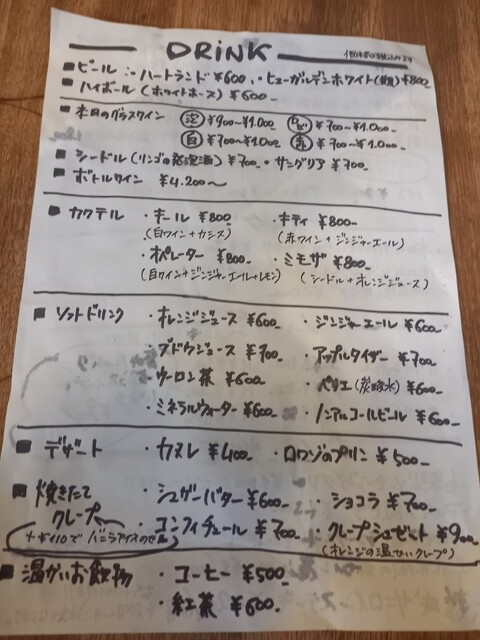 DRINK
価格は税込みです
■ビール :・ハートランド ¥600、・ヒューガルデンホワイト(樽)¥800
■ハイボール (ホワイトホース) ¥600-
■本日のグラスワイン 泡 ¥900~¥1.000 ロゼ ¥700~¥1.000-
白 ¥700~¥1.000 赤 ¥700~¥1.000-
■シードル(リンゴの発泡酒) ¥700-・サングリア ¥700-
■ボトルワイン ¥4.200~
■カクテル ・キール ¥800 ・キティ ¥800-
(白ワイン+カシス) (赤ワイン+ジンジャーエール)
・オペレーター ¥800- ・ミモザ ¥800-
(白ワイン+ジンジャーエール+レモン) (シードル+オレンジジュース)
■ソフトドリンク ・オレンジジュース ¥600- ・ジンジャーエール ¥600-
・ブドウジュース ¥700- ・アップルタイザー ¥700-
・ウーロン茶 ¥600- ・ペリエ(炭酸水) ¥600-
・ミネラルウォーター ¥600- ・ノンアルコールビール ¥600-
■デザート ・カヌレ ¥400- ・ロワゾのプリン ¥500-
■焼きたて ・シュガーバター ¥600- ・ショコラ ¥700-
クレープ ・コンフィチュール ¥700- ・クレープシュゼット ¥900-
+¥110で バニラアイスのせ (オレンジの温かいクレープ)
■温かいお飲物 ・コーヒー ¥500-
・紅茶 ¥600-